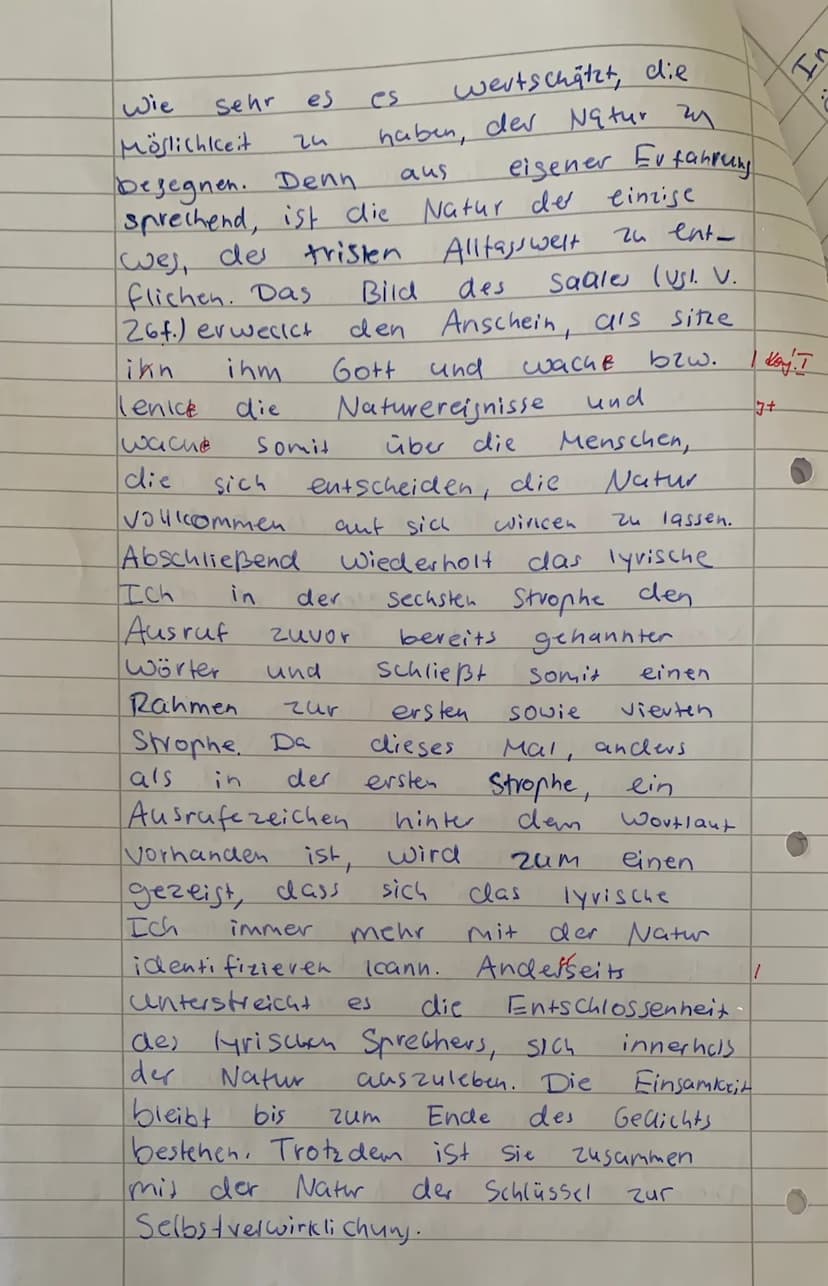 Wie sehr es es wertschätzt, die
Möglichkeit zu haben, der Natur zu
begegnen. Denn aus eigener Erfahrung
sprechend, ist die Natur der einzige
Weg, der tristen Alltagswelt zu ent-
fliehen. Das Bild des Saales (vgl. V.
26f.) erweckt den Anschein, als sitze
ihn ihm Gott und wache bzw.
lenke die Naturereignisse und
wache somit über die Menschen,
die sich entscheiden, die Natur
vollkommen auf sich wirken zu lassen.
Abschließend wiederholt das lyrische
Ich in der sechsten Strophe den
Ausruf zuvor bereits genannter
Wörter und schließt somit einen
Rahmen zur ersten sowie vierten
Strophe. Da dieses Mal, anders
als in der ersten Strophe, ein
Ausrufezeichen hinter dem Wortlaut
vorhanden ist, wird zum einen
gezeigt, dass sich das lyrische
Ich immer mehr mit der Natur
identifizieren kann. Anderseits
unterstreicht es die Entschlossenheit
des lyrischen Sprechers, sich innerhalb
der Natur auszuleben. Die Einsamkeit
bleibt bis zum Ende des Gedichts
bestehen. Trotzdem ist sie zusammen
mit der Natur der Schlüssel zur
Selbstverwirklichung.